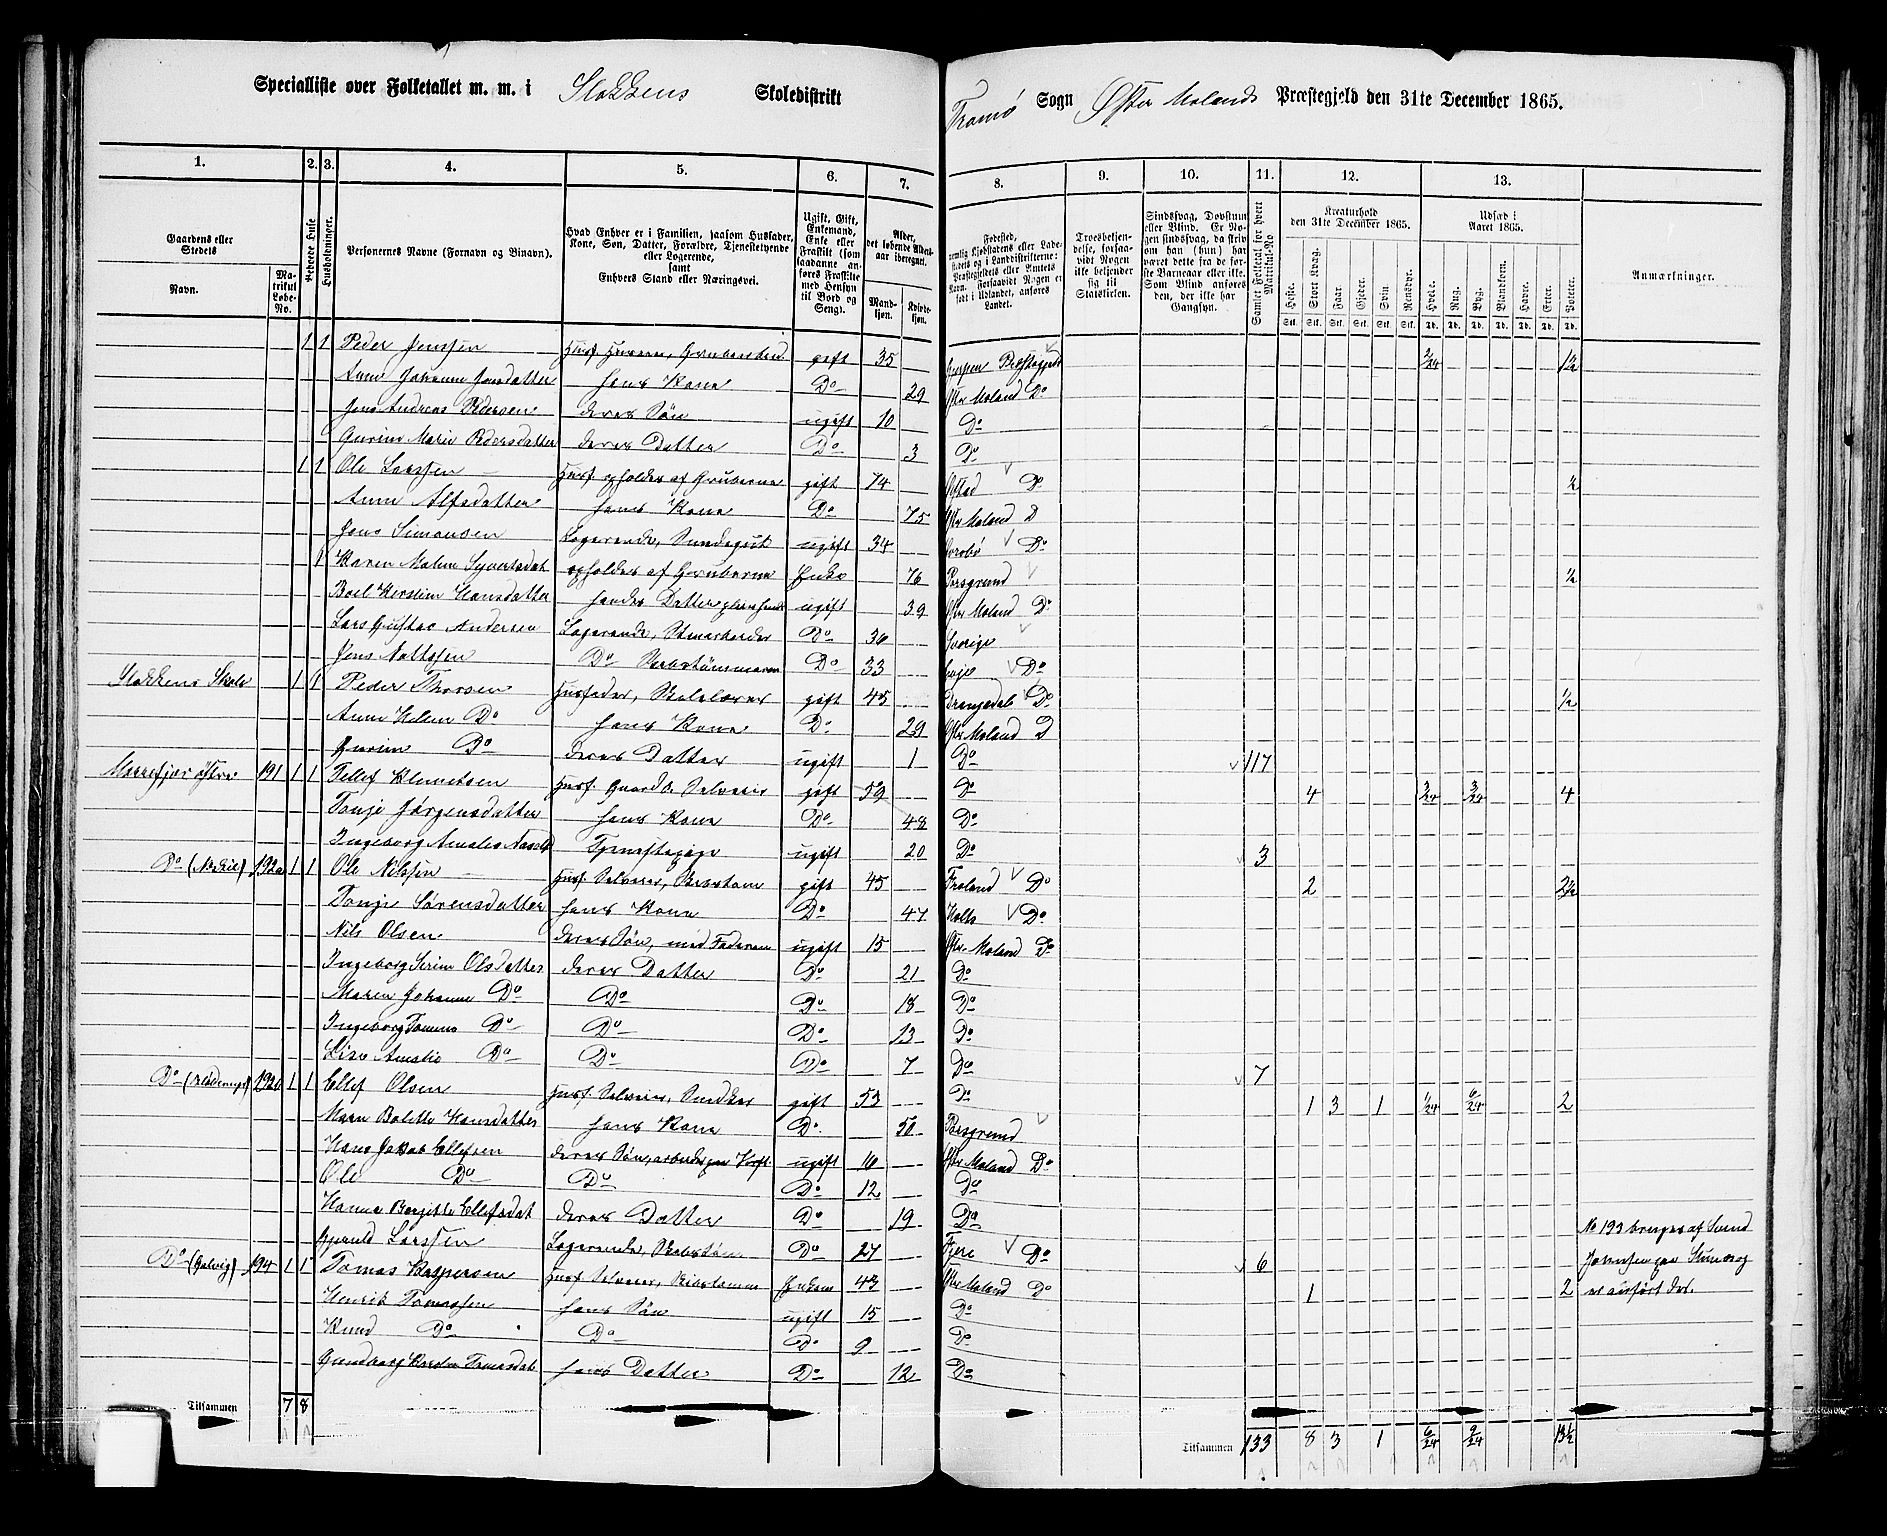 Specialliste over Folketallet m. m. i Stokkens Skoledistrikt
Tromø Sogn Øster Molands Præstegjeld den 31te December 1865.
1. 2. 3. 4. 5. 6. 7. 8. 9. 10. 11. 12. 13.
Gaardens eller Stedets Navn. Matrikul Løbe-No. Beboede Huse Husholdninger. Personernes Navne (Fornavn og Binavn).
Hvad Enhver er i Familien, saasom Husfader, Kone, Søn, Datter, Forældre, Tjenestetyende eller Logerende, samt Enhvers Stand eller Næringsvei.
Ugift, Gift, Enkemand, Enke eller Fraskilt (som saadanne anføres Fraskilte med Hensyn til Bord og Seng).
Alder, det løbende Aldersaar iberegnet. Mandkjøn. Kvindekjøn.
Fødested, nemlig Kjøbstadens eller Ladestedets og i Landdistrikterne: Præstegjeldets eller Amtets Navn, forsaavidt Nogen er født i Udlandet, anføres Landet.
Troesbekjendelse, forsaavidt Nogen ikke bekjender sig til Statskirken.
Sindssvag, Døvstum eller Blind. Er Nogen sindssvag, da skrives om han (hun) har været dette fra de første Barneaar eller ikke. Som Blind anføres den, der ikke har Gangsyn.
Samlet Folketal for hvert Matrikul-No
Kreaturhold den 31te December 1865. Heste. Stort Kvæg. Faar. Gjeder. Svin. Rensdyr.
Udsæd i Aaret 1865. Hvede. Rug. Byg. Blandkorn. Havre. Erter. Poteter.
Anmærkninger.
1 1 Peder Jenssen Husf. Huseier, Grubearbeid gift 35 Gjerpen Præstegjeld 2/24 1½
Anne Johanne Jensdatter hans Kone Do 29 Øster Moland Do
Jens Andreas Pedersen deres Søn ugift 10 Do
Gurine Marie Pedersdatter deres Datter Do 3 Do
1 1 Ole Larssen Husf. opholdes af Gruberne gift 74 Do ½
Anne Alfsdatter hans Kone Do 75 Øster Moland D
Jens Simonsen Logerende, ugift 34 Do
1 Karen Malene Syvertsdat opholdes af Gruberne Enke 76 Porsgrund ¼
Boel Kirstine Hansdatter hendes Datter ugift 39 Øster Moland Do
Lars Gustav Andersen Logerende, Do 36 Sverige
Jens Do Do 33 Do
Stokkens Skole 1 1 Peder Thorsen Husfader, Skolelærer gift 45 Drangedals Do ½
Anne Helene Do hans Kone Do 29 Øster Moland D
Gurine Do deres Datter ugift 1 Do 117
Marrefjær østre 191 1 1 Tellef Klemetsen Husf. Gaardb. Selveier gift 59 Do 4 3/24 3/24 4
Tonje Jørgensdatter hans Kone Do 48 Do
Ingeborg Amalie Tjenestepige ugift 20 Do 3
Do 192a 1 1 Ole Nilsen Husf. Selveier, gift 45 Froland Do 2 2½
Tonje Sørensdatter hans Kone Do 47 Holts Do
Nils Olsen deres Søn, med Faderen ugift 15 Øster Moland Do
Ingeborg Serine Olsdatter deres Datter Do 21 Do
Maren Johanne Do Do Do 18 Do
Ingeborg Do Do Do 13 Do
Lise Amalie Do Do Do 7 Do 7
Do 192b 1 1 Ellef Olsen Husf. Selveier, Snedker gift 53 Do 1 3 1 1/24 6/24 2
Maren Bolette Hansdatter hans Kone Do 50 Porsgrund
Hans Jakob Ellefsen deres Søn, ugift 16 Øster Moland Do
Ole Do Do Do 12 Do
Hanna Birgitte Ellefsdat deres Datter Do 19 Do
Larssen Logerende, Do 27 Fjere Do 6
Do 194 1 1 Tomas Kaspersen Husf. Selveier, Enkem 43 Øster Moland Do 1 2
Henrik Tomassen hans Søn ugift 15 Do
Knud Do Do Do 9 Do
hans Datter Do 12 Do
No 193 bruges af Svend
Jørensen paa
er anført der.
Tilsammen 7 8
Tilsammen 133 8 3 1 6/24 9/24 13½